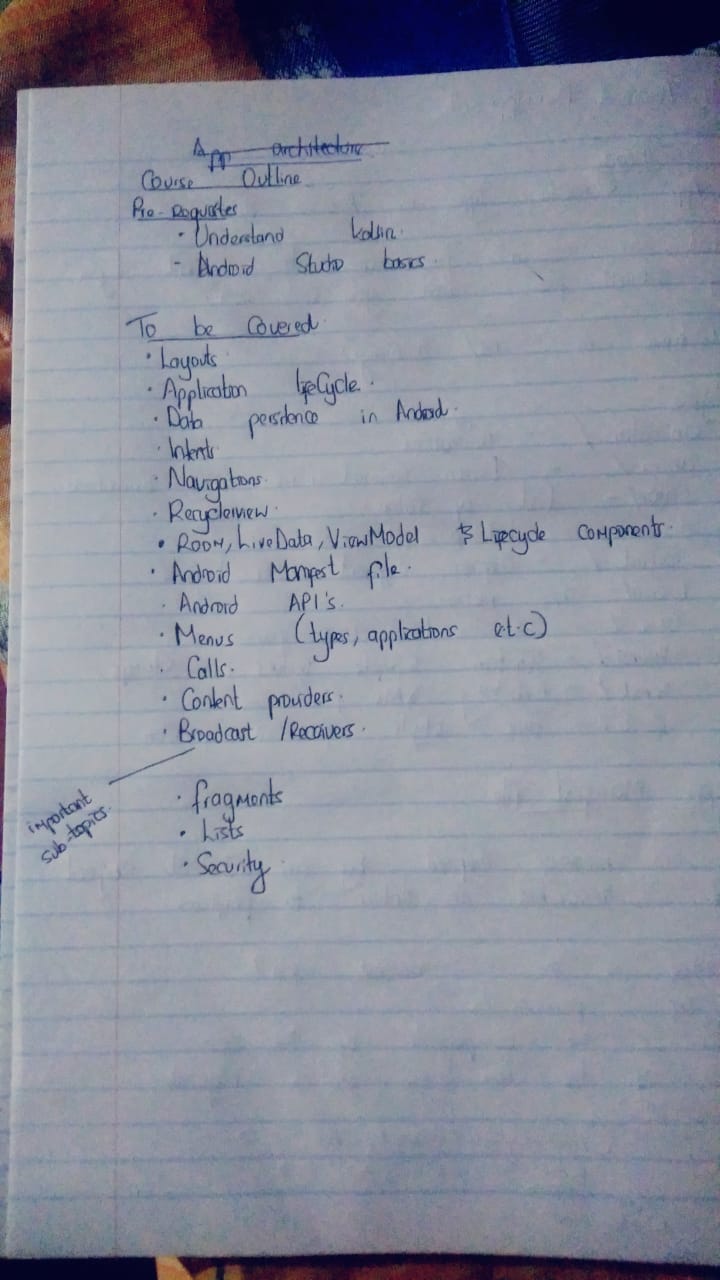 App architecture
Course Outline
Pre-Requstes
· Understand Kotlin.
- Android Studio basics.
To be Covered
· Layouts
· Application lifeCycle.
· Data persistence in Android.
· Intents
· Navigations.
· Recyclerview.
• ROOM, LiveData, ViewModel & Lifecycle components.
· Android Manifest file.
· Android API's.
· Menus (types, applications e.t.c)
· Calls.
· Content providers.
· Broadcast /Receivers.
important
sub-topics.
· fragments
• Lists
· Security